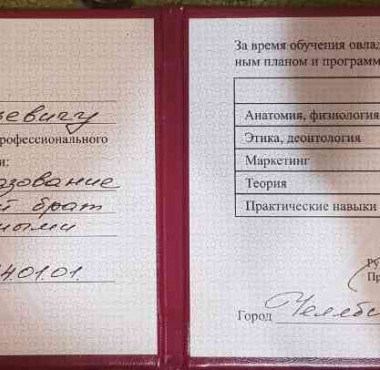 евичу
рофессионального
и:
зование
й брат
ными
4.01.01.
За время обучения овлад
ным планом и программ
Анатомия, физиология
Этика, деонтология
Маркетинг
Теория
Практические навыки
Ру
Пр
Город Челяби